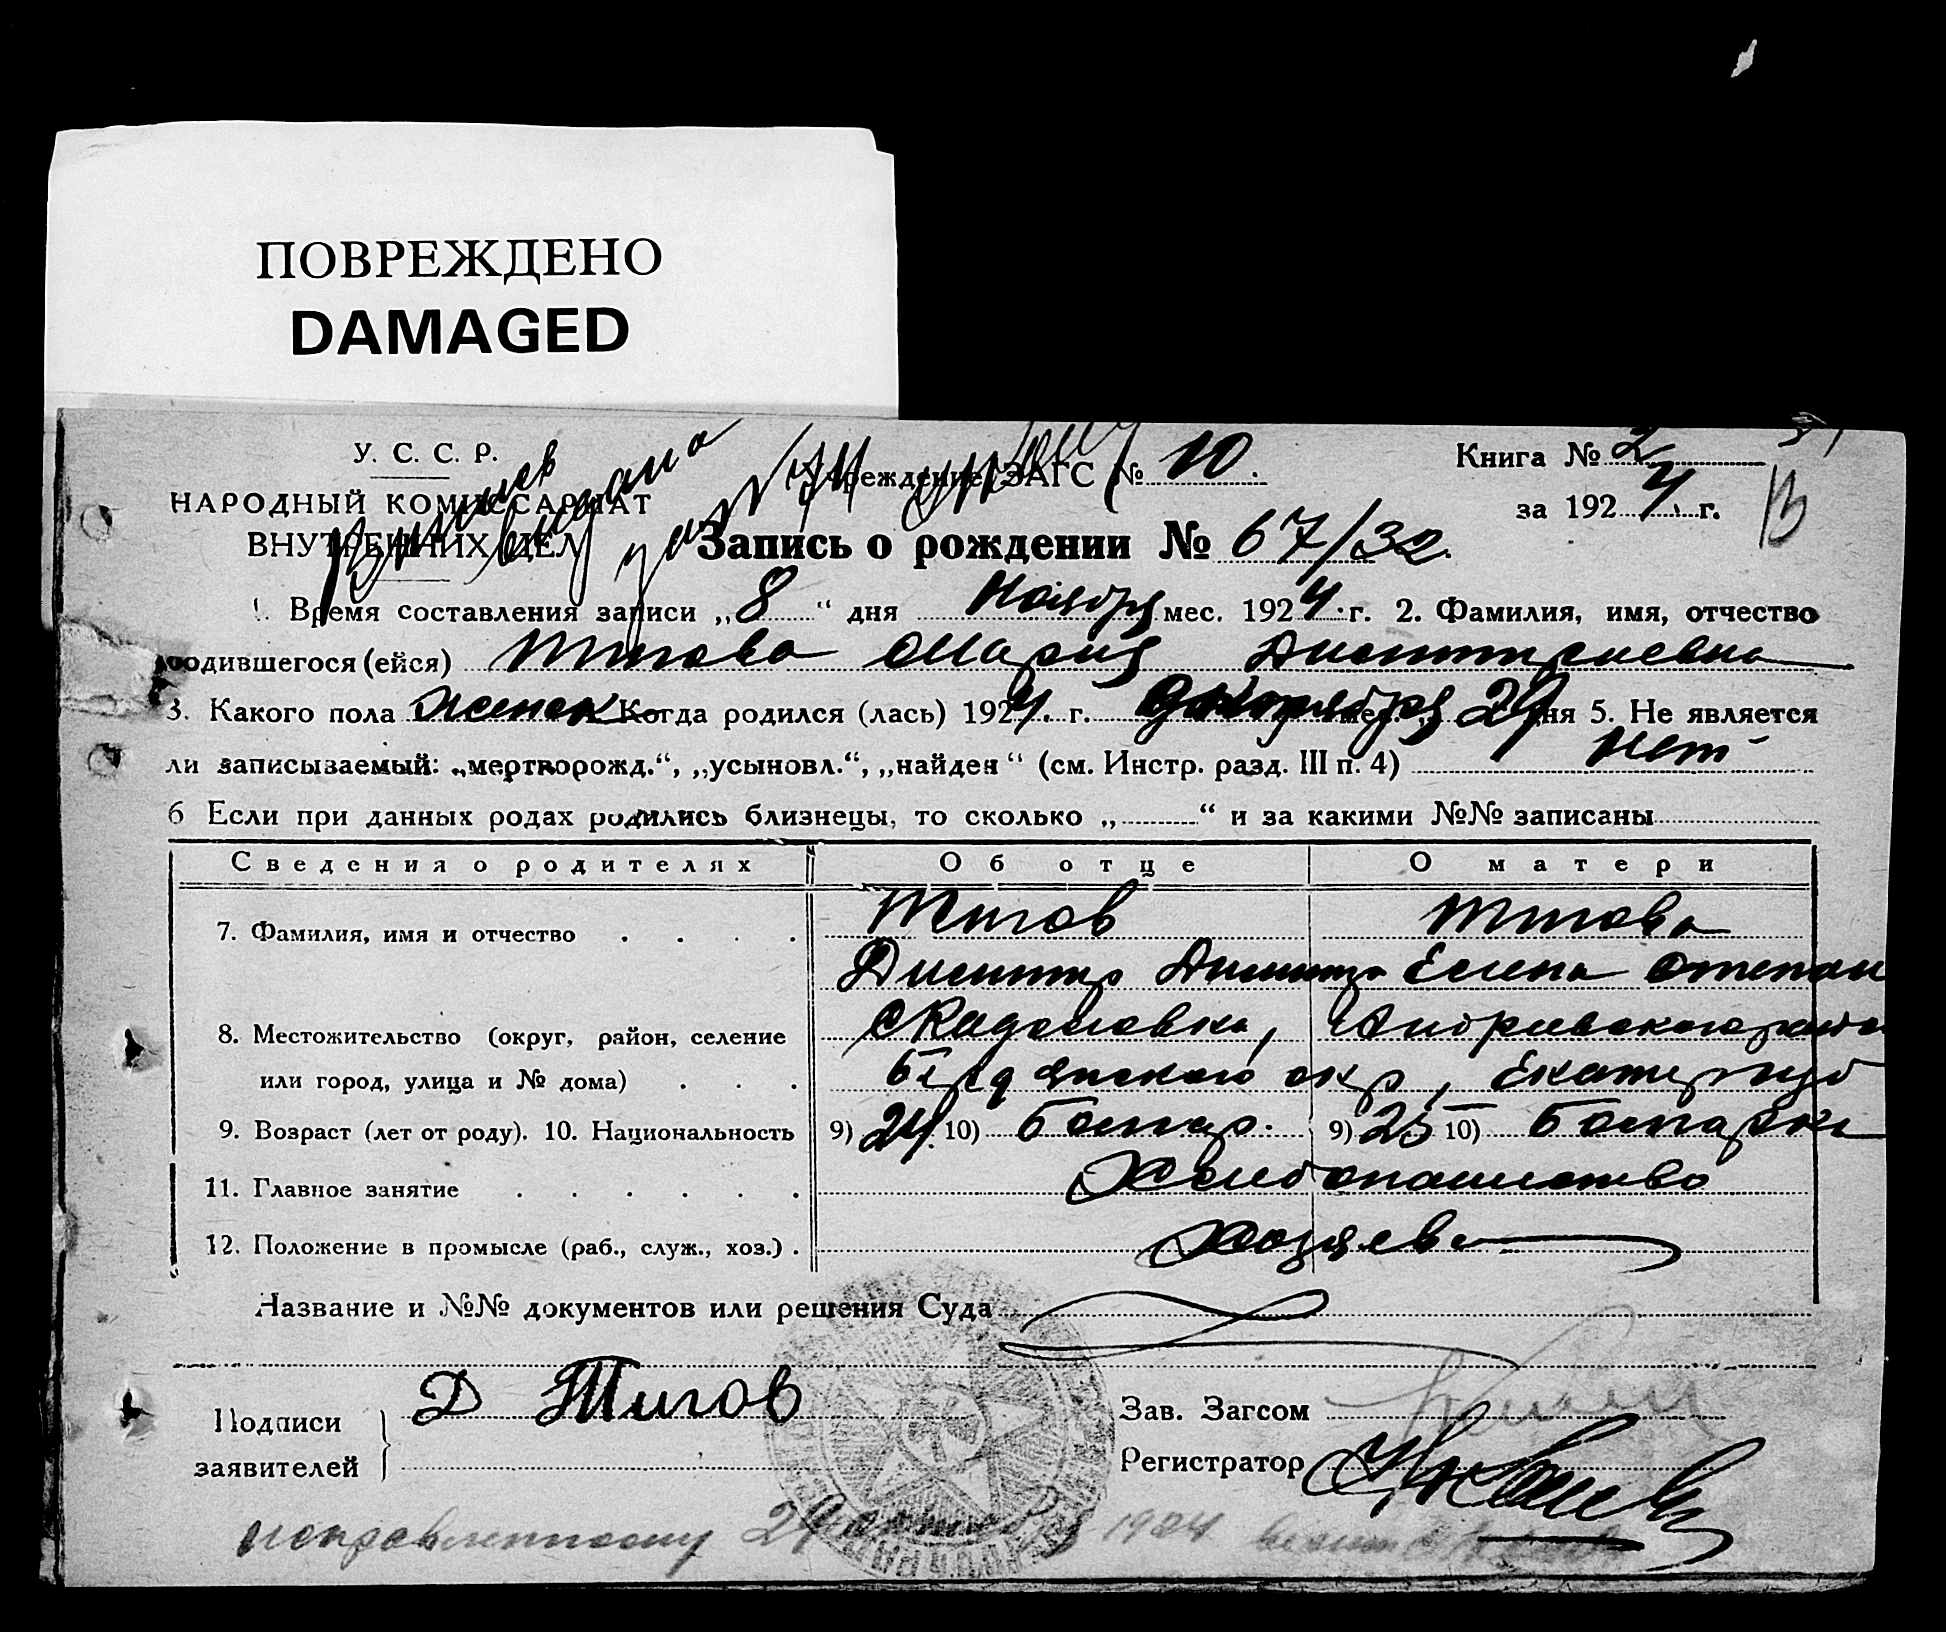 ПОВРЕЖДЕНО
DAMAGED
У. С. С. Р.
НАРОДНЫЙ КОМИССАРИАТ
ВНУТРЕННИХ ДЕЛ
выдана
Учреждение ЗАГС № 10.
Книга № 2
за 1924 г.
Запись о рождении № 67/32.
1. Время составления записи „8“ дня Ноября мес. 1924 г. 2. Фамилия, имя, отчество
родившегося (ейся) Титова Мария Димитриевна
3. Какого пола женск Когда родился (лась) 1924 г. мес. 29 дня 5. Не является
ли записываемый: „мертворожд.“, „усыновл.“, „найден“ (см. Инстр. разд. III п. 4) Нет
6 Если при данных родах родились близнецы, то сколько „ “ и за какими №№ записаны
Сведения о родителях Об отце О матери
7. Фамилия, имя и отчество Титов Титова
Димитр Димитр Елена Степан
8. Местожительство (округ, район, селение с Радоловка, Андриевского
или город, улица и № дома) Бердянского окр, Екатер губ
9. Возраст (лет от роду). 10. Национальность 9) 24. 10) Болгар. 9) 25 10) Болгарки
11. Главное занятие Хлебопашество
12. Положение в промысле (раб., служ., хоз.) Хозяева
Название и №№ документов или решения Суда
Подписи
заявителей
Д Титов
Зав. Загсом
Регистратор
исправленному 29 1924